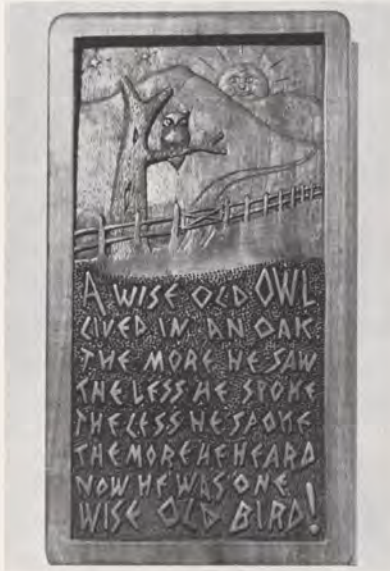 A WISE OLD OWL
LIVED IN AN OAK.
THE MORE HE SAW
THE LESS HE SPOKE
THE LESS HE SPOKE
THE MORE HE HEARD
NOW HE WAS ONE
WISE OLD BIRD!